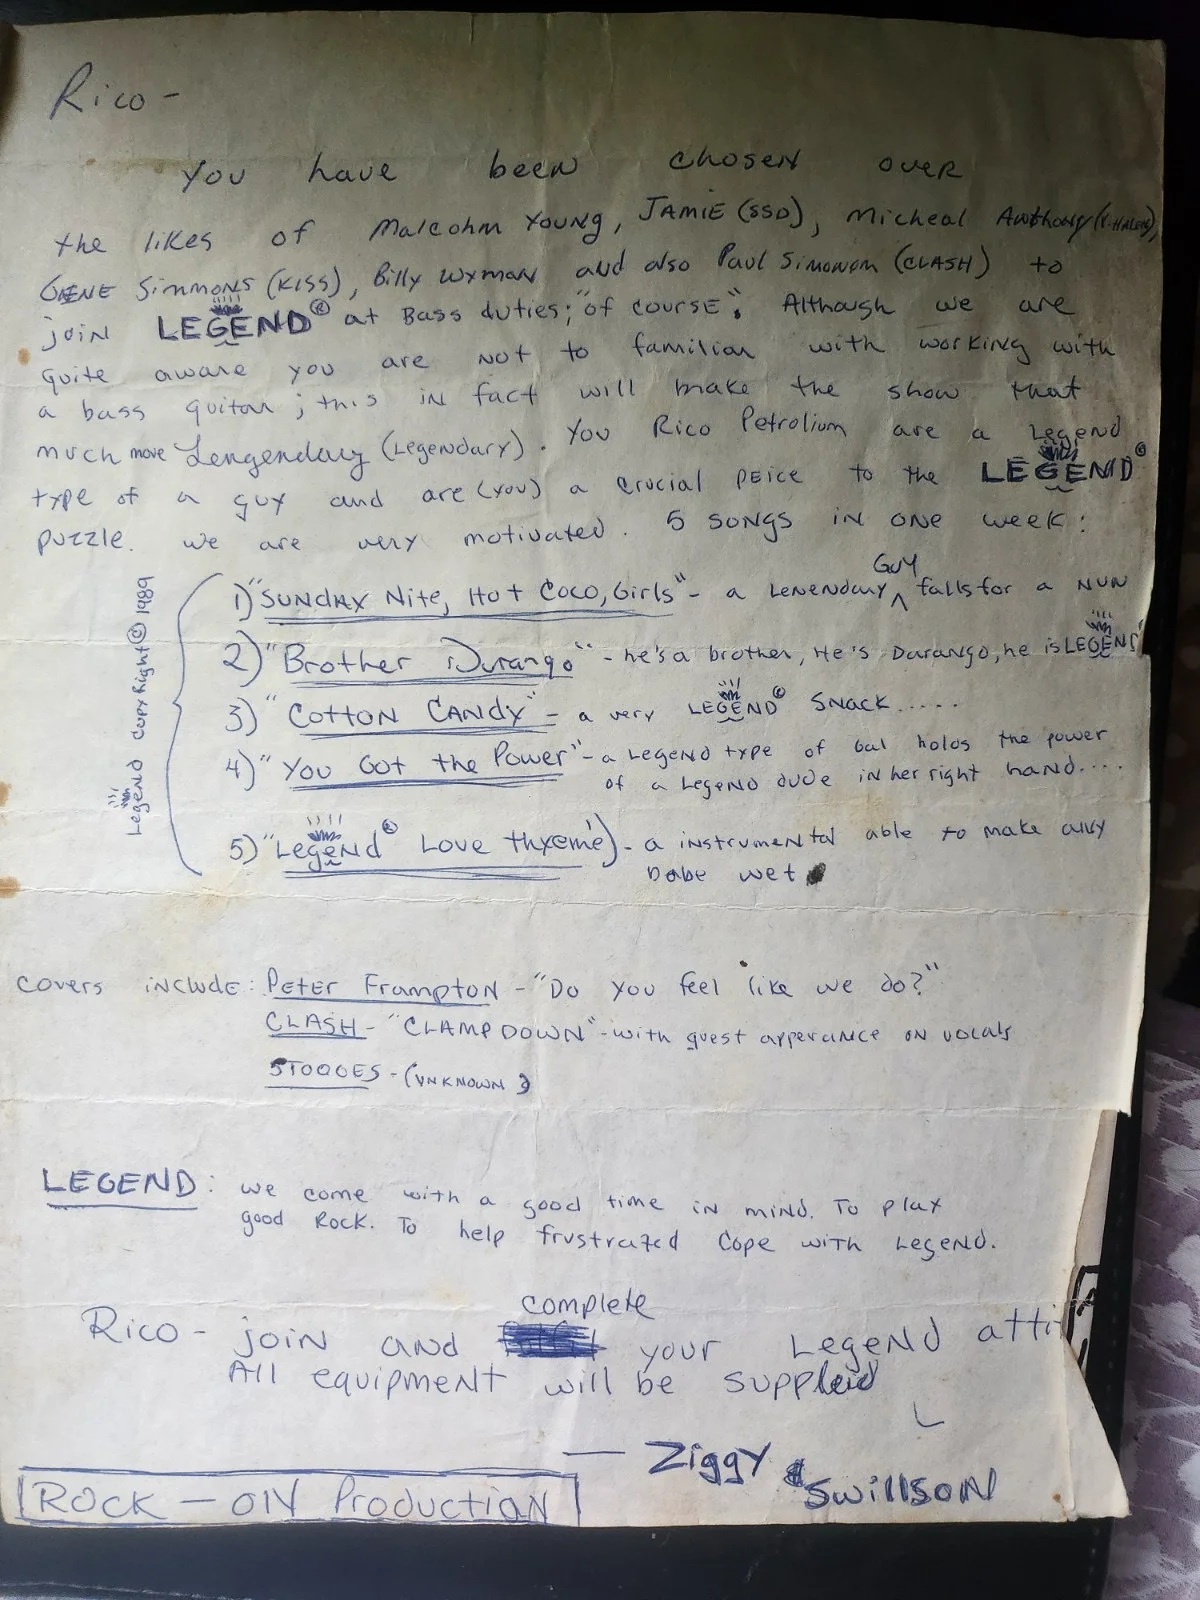 Rico -
You have been chosen over
the likes of Malcohm Young, JAMIE (SSD), Micheal Anthony (V. HALEN),
GENE Simmons (KISS), Billy Wyman and also Paul Simonon (CLASH) to
join LEGEND © at Bass duties; "of course". Although we are
quite aware you are not to familiar with working with
a bass guitar; this in fact will make the show that
much more Lengendary (Legendary). You Rico Petrolium are a Legend
type of a guy and are (you) a crucial peice to the LEGEND ©
puzzle. we are very motivated. 5 songs in one week:
Legend Copy Right © 1989
1) "Sunday Nite, Hot Coco, Girls" - a Lenendary Guy falls for a NUN
2) "Brother Durango" - he's a brother, He's Durango, he is LEGEND
3) "Cotton Candy" - a very LEGEND © SNACK.....
4) "You Got the Power" - a Legend type of gal holds the power
of a Legend dude in her right hand....
5) "Legend © Love thyeme) - a instrumental able to make any
babe wet
Covers include: Peter Frampton - "Do you feel like we do?"
CLASH - "CLAMPDOWN" - with guest apperance on vocals
STOOGES - (UNKNOWN)
LEGEND: we come with a good time in mind. To play
good Rock. To help frustrated cope with Legend.
complete
Rico - join and your Legend atti
All equipment will be supplied
— Ziggy & Swillson
ROCK - ON Production